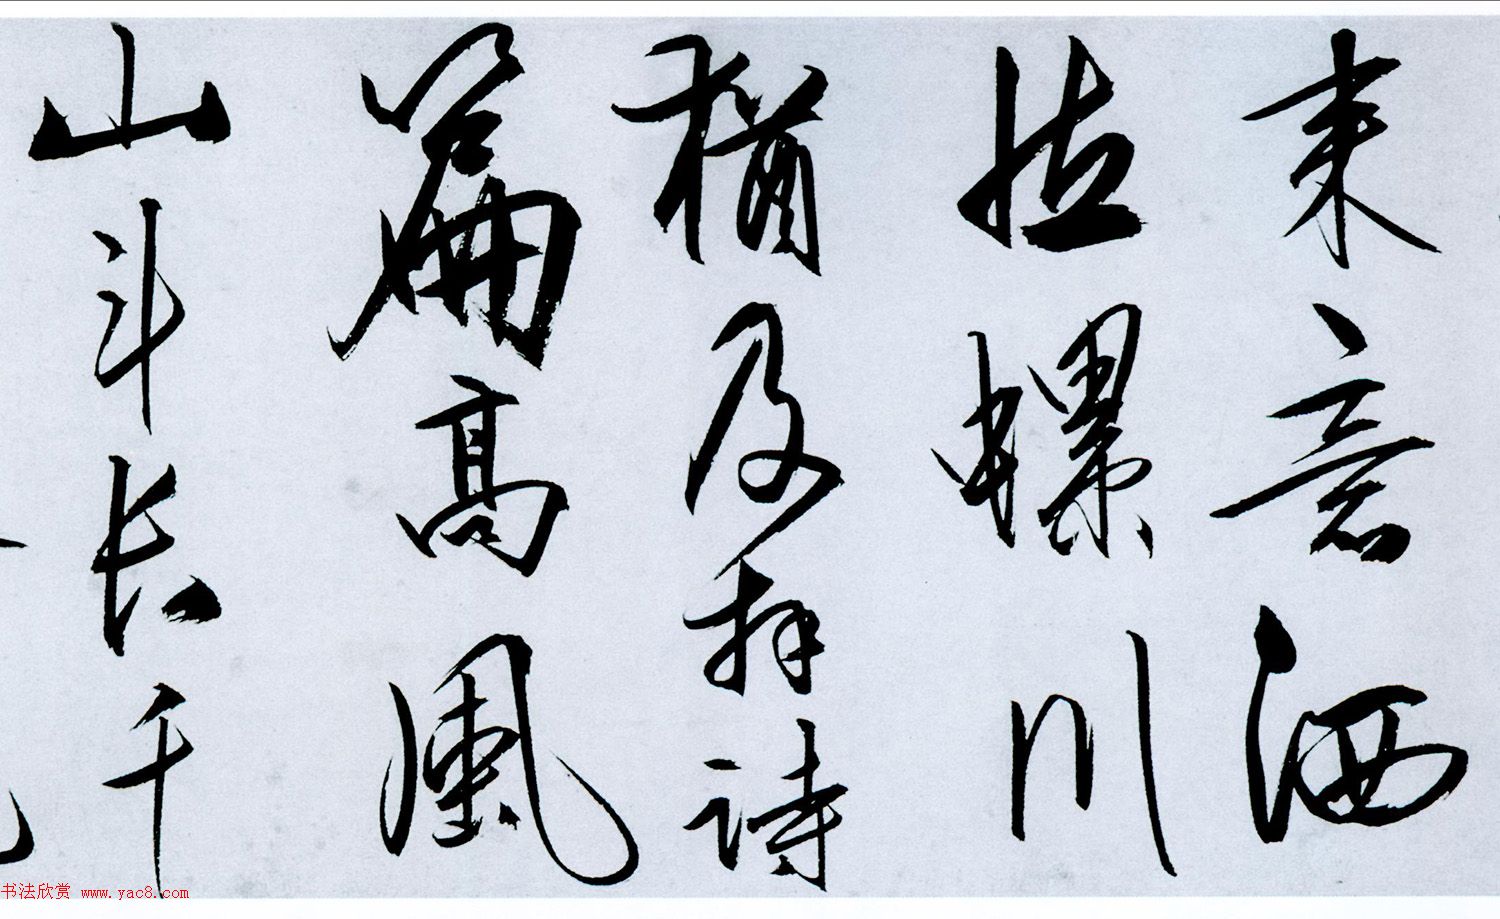 来意洒
怯螺川
犹及拜诗
篇高风
山斗长千
书法欣赏 www.yac8.com